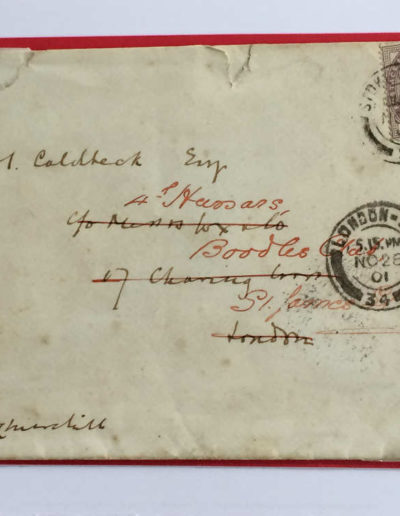 Caldbeck Esq
4th Hussars
c/o Messrs Cox & Co
Boodles
17 Charing Cross
St. James
London
Churchill
LONDON
5.15.PM
NO 26
01
34